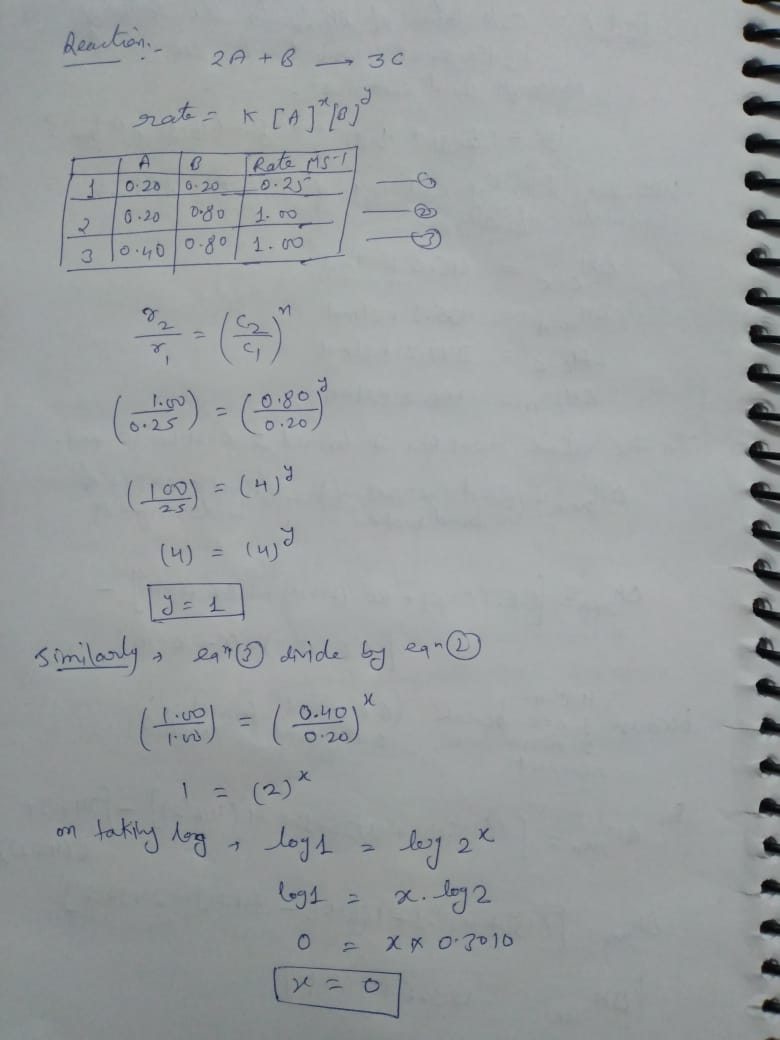 Reaction:-
2A + B → 3C
rate = K [A]^x [B]^y
A B Rate Ms-1
1 0.20 0.20 0.25 ①
2 0.20 0.80 1.00 ②
3 0.40 0.80 1.00 ③
r₂/r₁ = (C₂/C₁)^n
(1.00/0.25) = (0.80/0.20)^y
(100/25) = (4)^y
(4) = (4)^y
y = 1
Similarly, eqn ③ divide by eqn ②
(1.00/1.00) = (0.40/0.20)^x
1 = (2)^x
on taking log, log 1 = log 2^x
log 1 = x. log 2
0 = x × 0.3010
x = 0